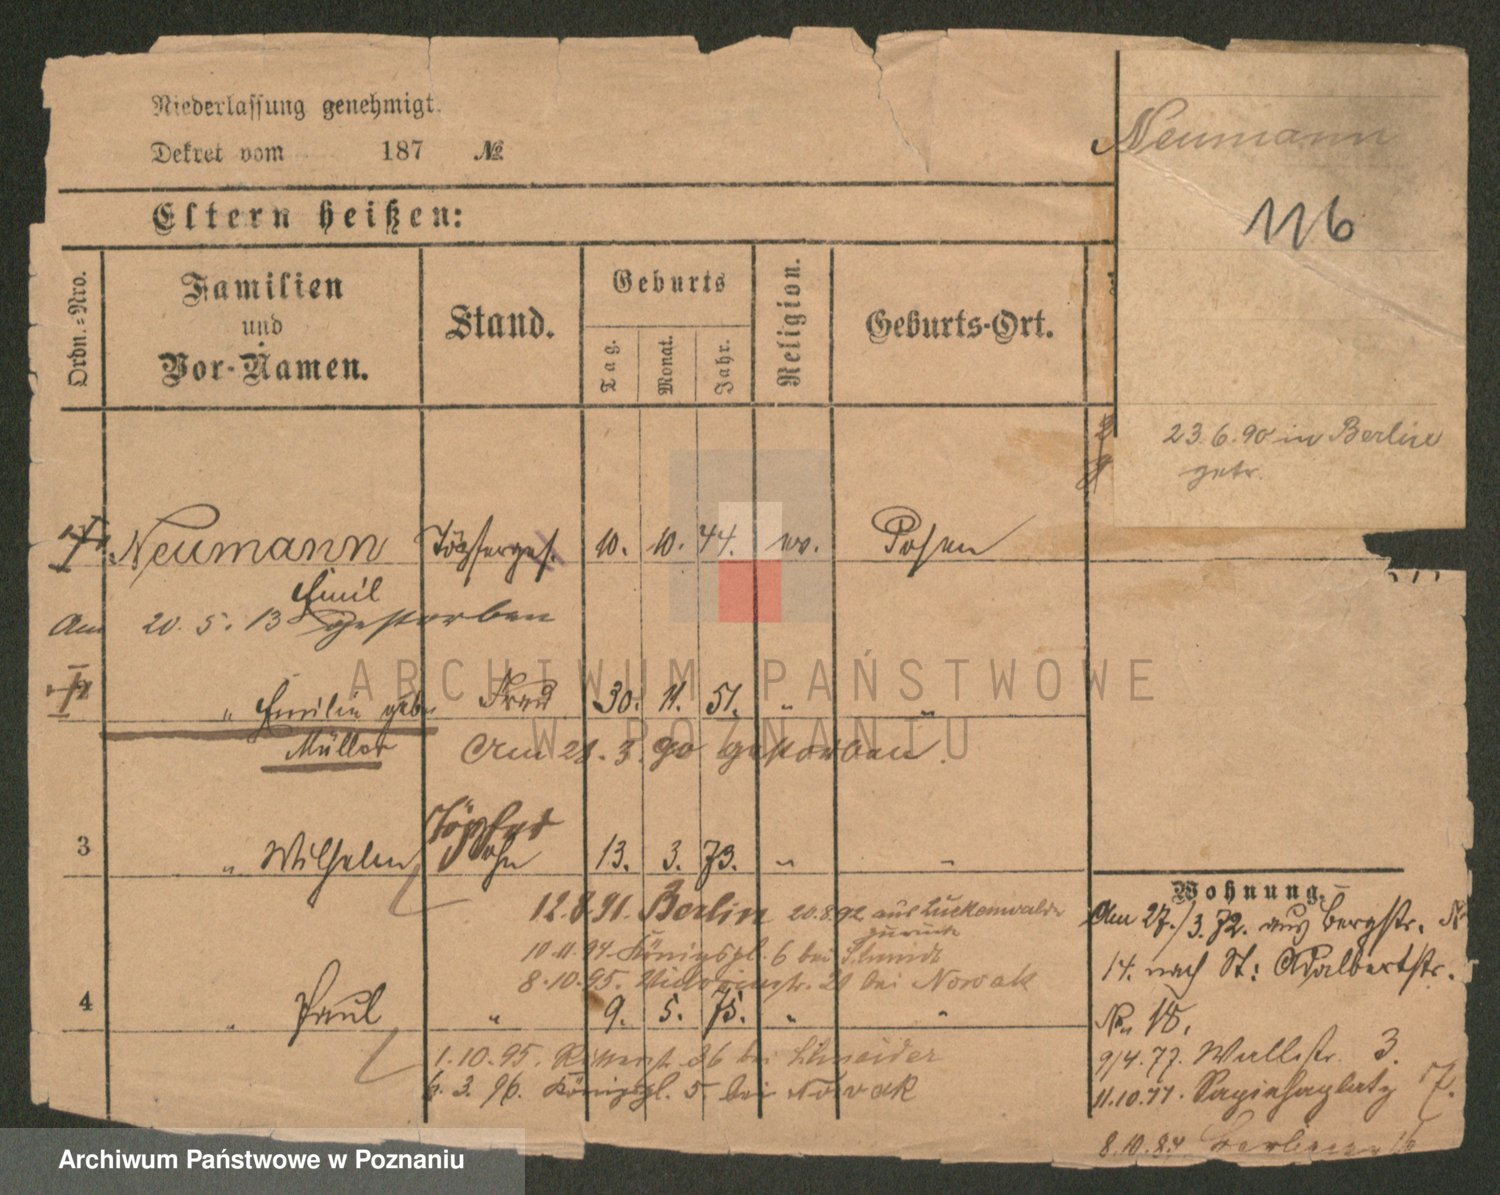 Niederlassung genehmigt.
Dekret vom 187 №
Eltern heißen:
Ordn.-Nro.
Familien
und
Vor-Namen.
Stand.
Geburts
Tag.
Monat.
Jahr.
Religion.
Geburts-Ort.
Neumann
116
23.6.90 in Berlin
getr.
Neumann Töpferges. 10. 10. 44. ev. Posen
Emil
Am 20. 5. 13 gestorben
" Emilie geb. Frau 30. 11. 51. " "
Müller Am 28. 3. 90 gestorben.
Töpfer
3 " Wilhelm Sohn 13. 3. 73. " "
12.8.91. Berlin 20.8.92 aus Luckenwalde
zurück
10.11.94. Königspl. 6 bei Schmidt
8.10.95. Victoriastr. 20 bei Nowak
4 " Paul " 9. 5. 75. " "
1.10.95. Ritterstr. 36 bei Schneider
6.3.96. Königspl. 5 bei Nowak
Wohnung.
Am 27./3.72. aus Bergstr. №
14. nach St: Adalbertstr.
No. 18.
9/4.77. Wallstr. 3.
11.10.77. Sapiehaplatz 7.
8.10.84. Berliner
ARCHIWUM PAŃSTWOWE
W POZNANIU
Archiwum Państwowe w Poznaniu